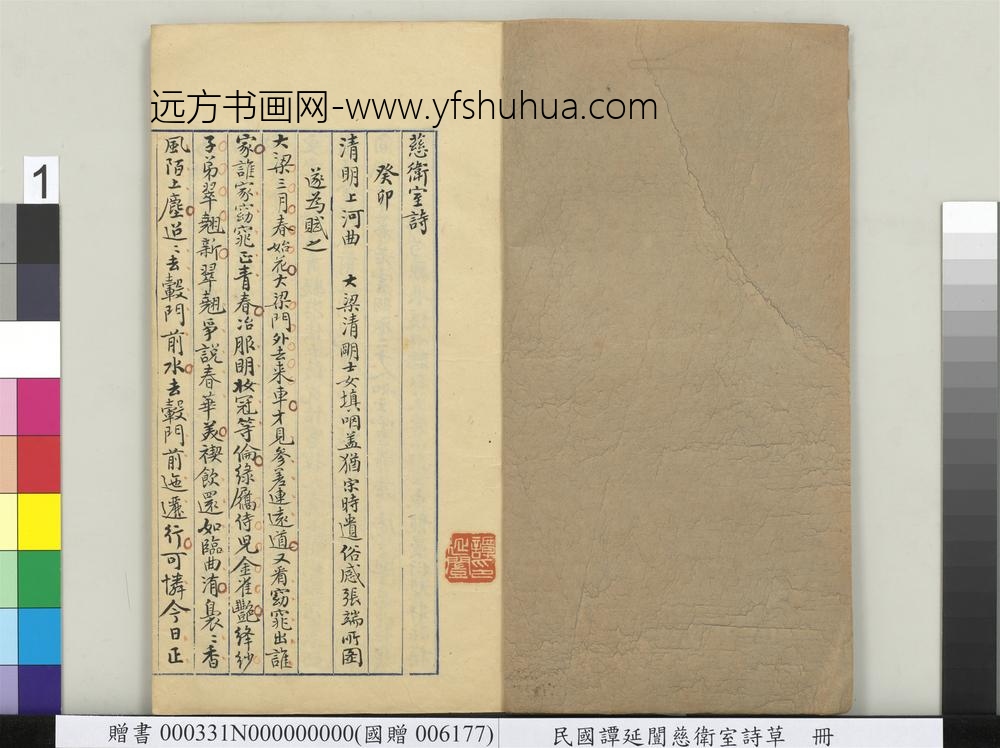 远方书画网-www.yfshuhua.com
慈衛室詩
癸卯
清明上河曲 大梁清明士女填咽盖猶宋時遺俗感張端所圖
遂為賦之
大梁三月春始花大梁門外去来車才見參差連遠道又看窈窕出誰
家誰家窈窕正青春冶服明妝冠等倫綠幘侍兒金雀艷絳紗
子弟翠翹新翠翹爭說春華美禊飲還如臨曲洧裊〻香
風陌上塵迢〻去轂門前水去轂門前迤邐行可憐今日正
譚延闓印
1
贈書 000331N000000000(國贈 006177)
民國譚延闓慈衛室詩草 冊